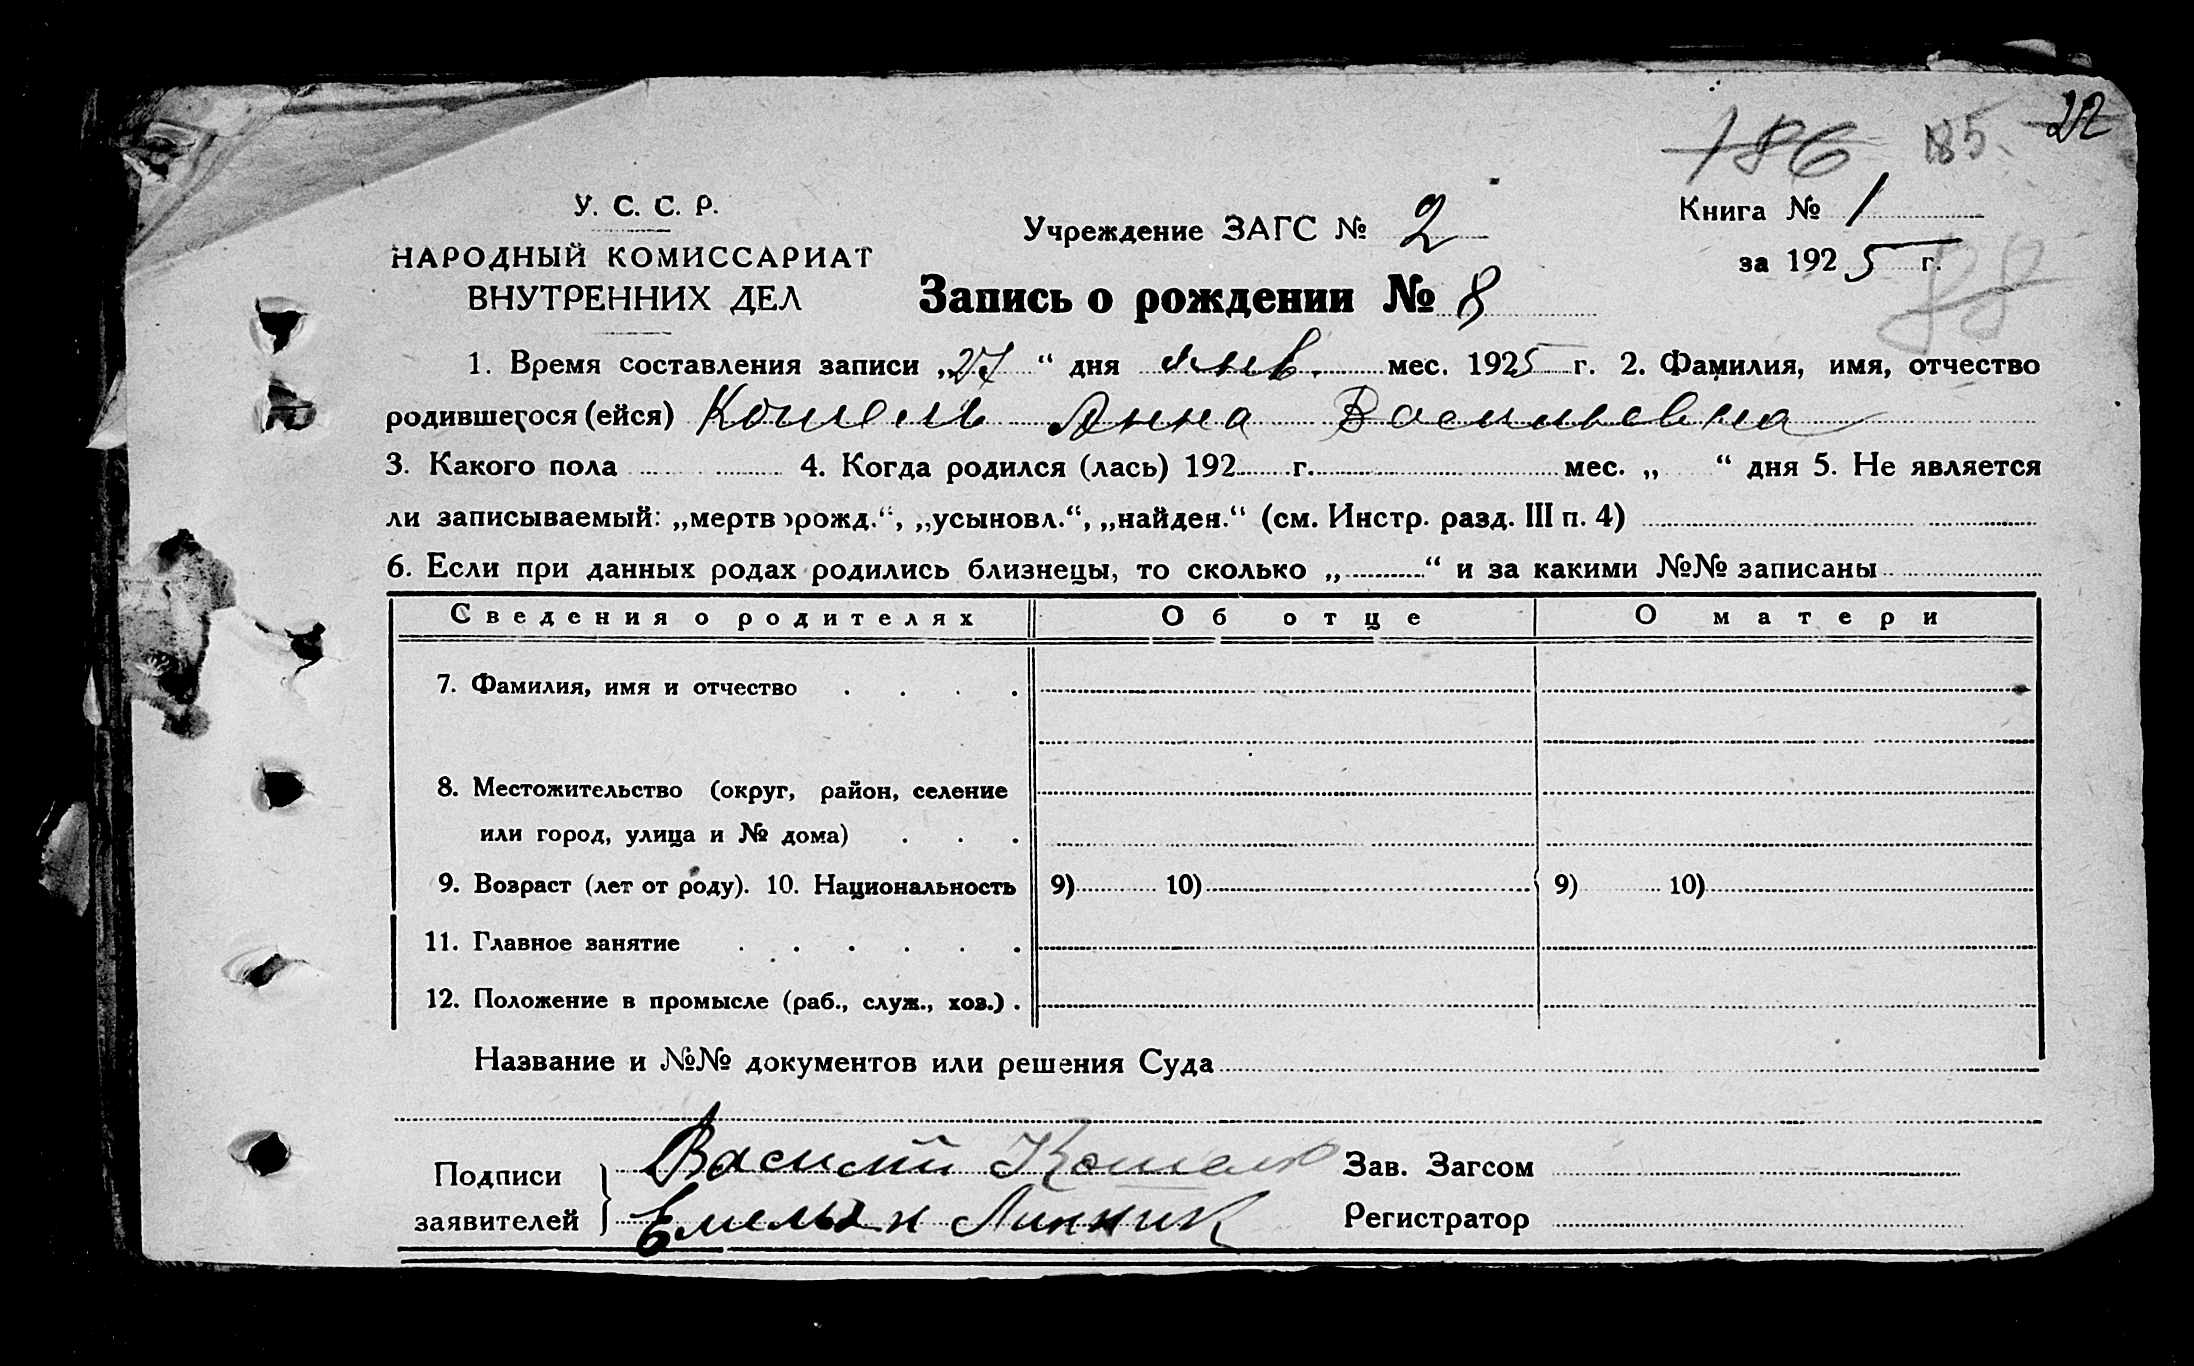 186 185 22
У. С. С. Р.
НАРОДНЫЙ КОМИССАРИАТ
ВНУТРЕННИХ ДЕЛ
Учреждение ЗАГС № 2
Книга № 1
за 1925 г.
88
Запись о рождении № 8
1. Время составления записи „27“ дня янв. мес. 1925 г. 2. Фамилия, имя, отчество
родившегося (ейся) Кошель Анна Васильевна
3. Какого пола 4. Когда родился (лась) 192 г. мес. „ “ дня 5. Не является
ли записываемый: „мертворожд.“, „усыновл.“, „найден.“ (см. Инстр. разд. III п. 4)
6. Если при данных родах родились близнецы, то сколько „ “ и за какими №№ записаны
Сведения о родителях Об отце О матери
7. Фамилия, имя и отчество
8. Местожительство (округ, район, селение
или город, улица и № дома)
9. Возраст (лет от роду). 10. Национальность 9) 10) 9) 10)
11. Главное занятие
12. Положение в промысле (раб., служ., хоз.)
Название и №№ документов или решения Суда
Подписи
заявителей
Василий Кошель
Емельян Линник
Зав. Загсом
Регистратор